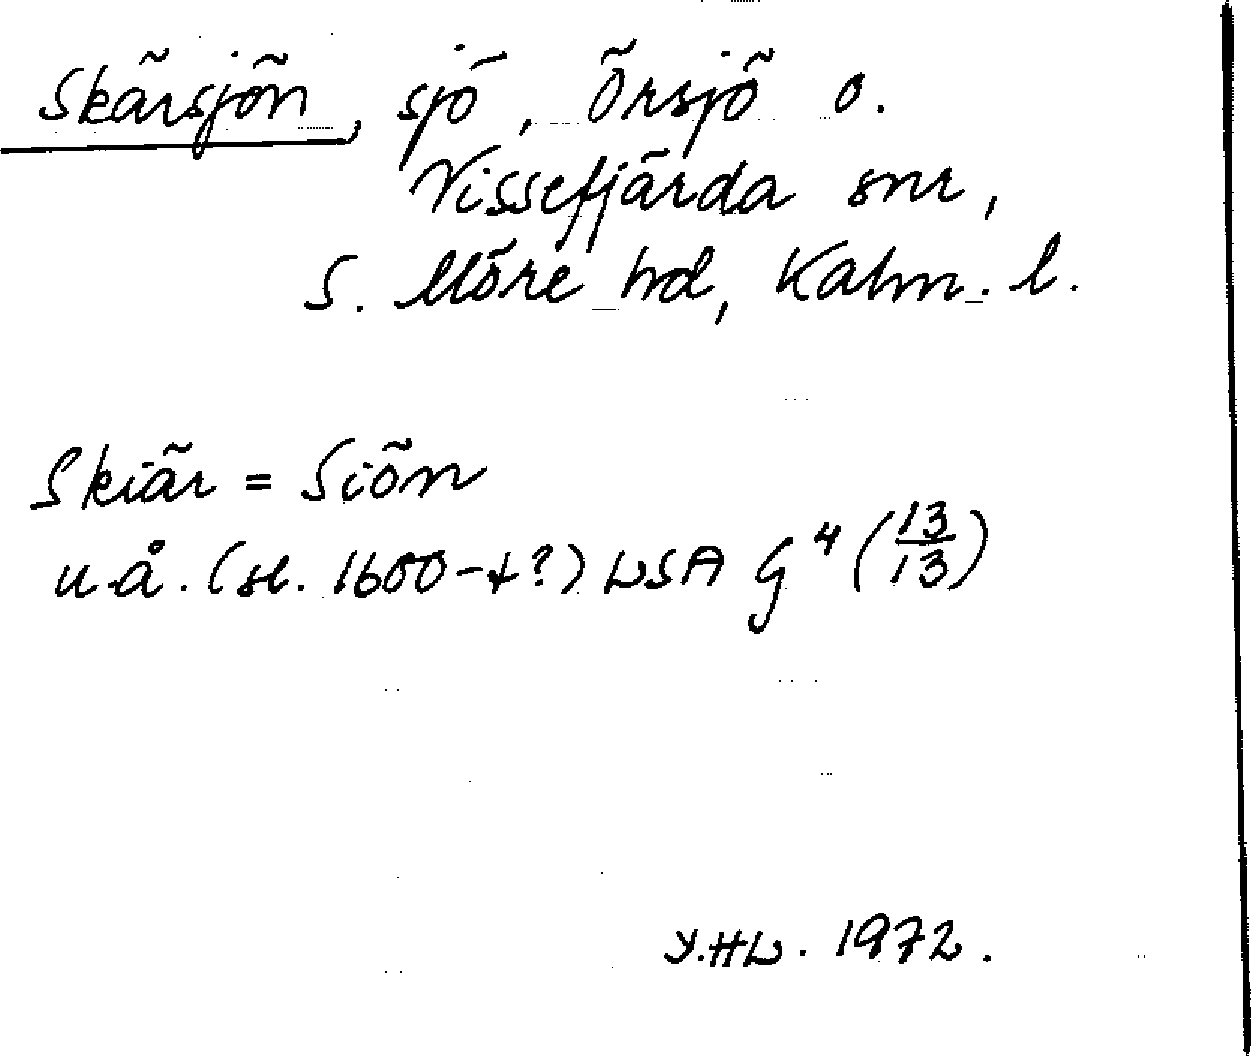 Skärsjön, sjö, Örsjö o.
Vissefjärda snr,
S. Möre hd, Kalm. l.
Skiär = Siön
u.å. (sl. 1600-t?) LSA G⁴ (13/13)
Y.HL. 1972.